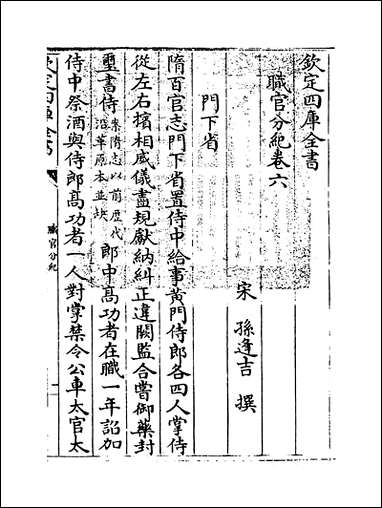 欽定四庫全書
職官分紀卷六
宋 孫逢吉 撰
門下省
隋百官志門下省置侍中給事黃門侍郎各四人掌侍
從左右擯相威儀盡規獻納糾正違闕監合嘗御藥封
璽書侍案隋志以前歷代沿革原本並缺郎中髙功者在職一年詔加
侍中祭酒與侍郎髙功者一人對掌禁令公車太官太
欽定四庫全書
職官分紀